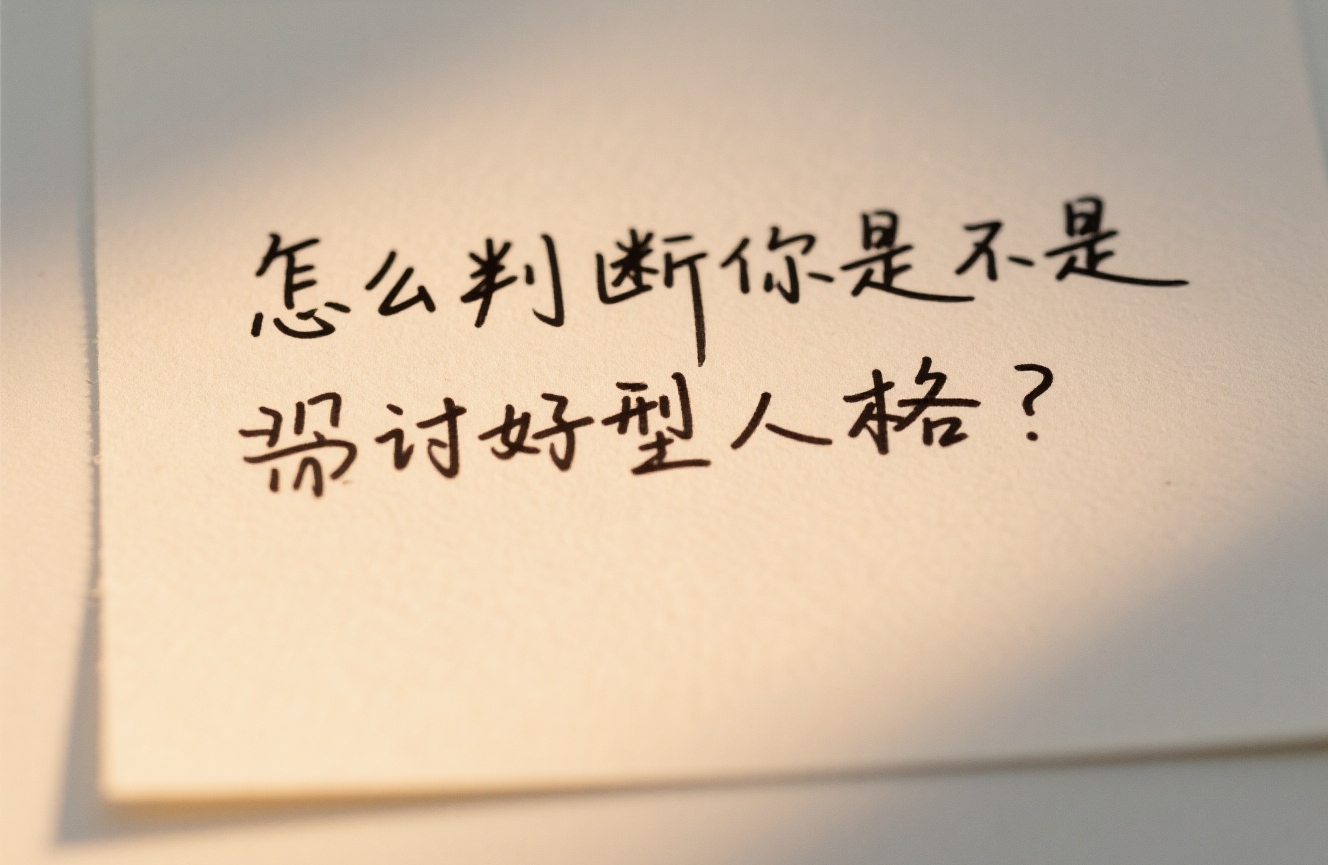 怎么判断你是不是
讨好型人格？